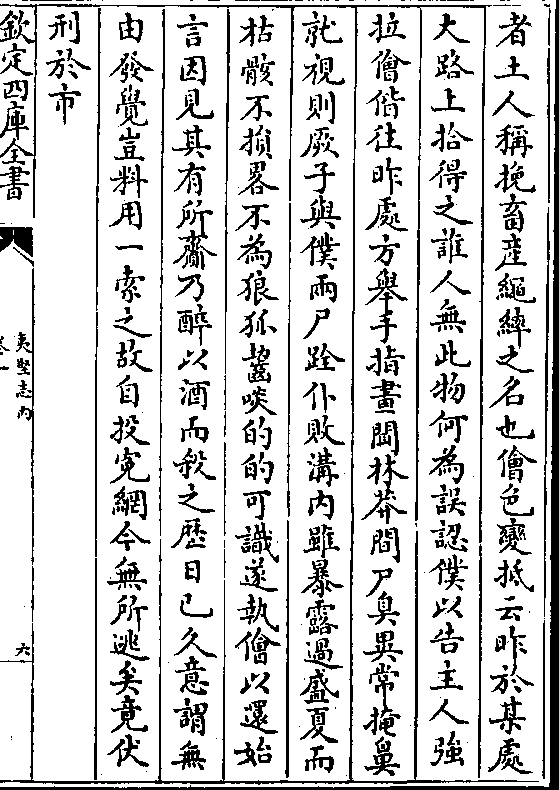 者土人稱挽畜産繩繂之名也儈色變抵云昨於某處
大路上拾得之誰人無此物何為誤認僕以告主人強
拉儈偕往昨處方舉手指畫聞林莽間尸臭異常掩鼻
就視則厥子與僕兩尸跧仆敗溝内雖暴露過盛夏而
枯骸不損畧不為狼狐齧啖的的可識遂執儈以還始
言因見其有所齎乃醉以酒而殺之歷日已久意謂無
由發覺豈料用一索之故自投寃網今無所逃矣竟伏
刑於市
欽定四庫全書
夷堅志丙
卷一
六